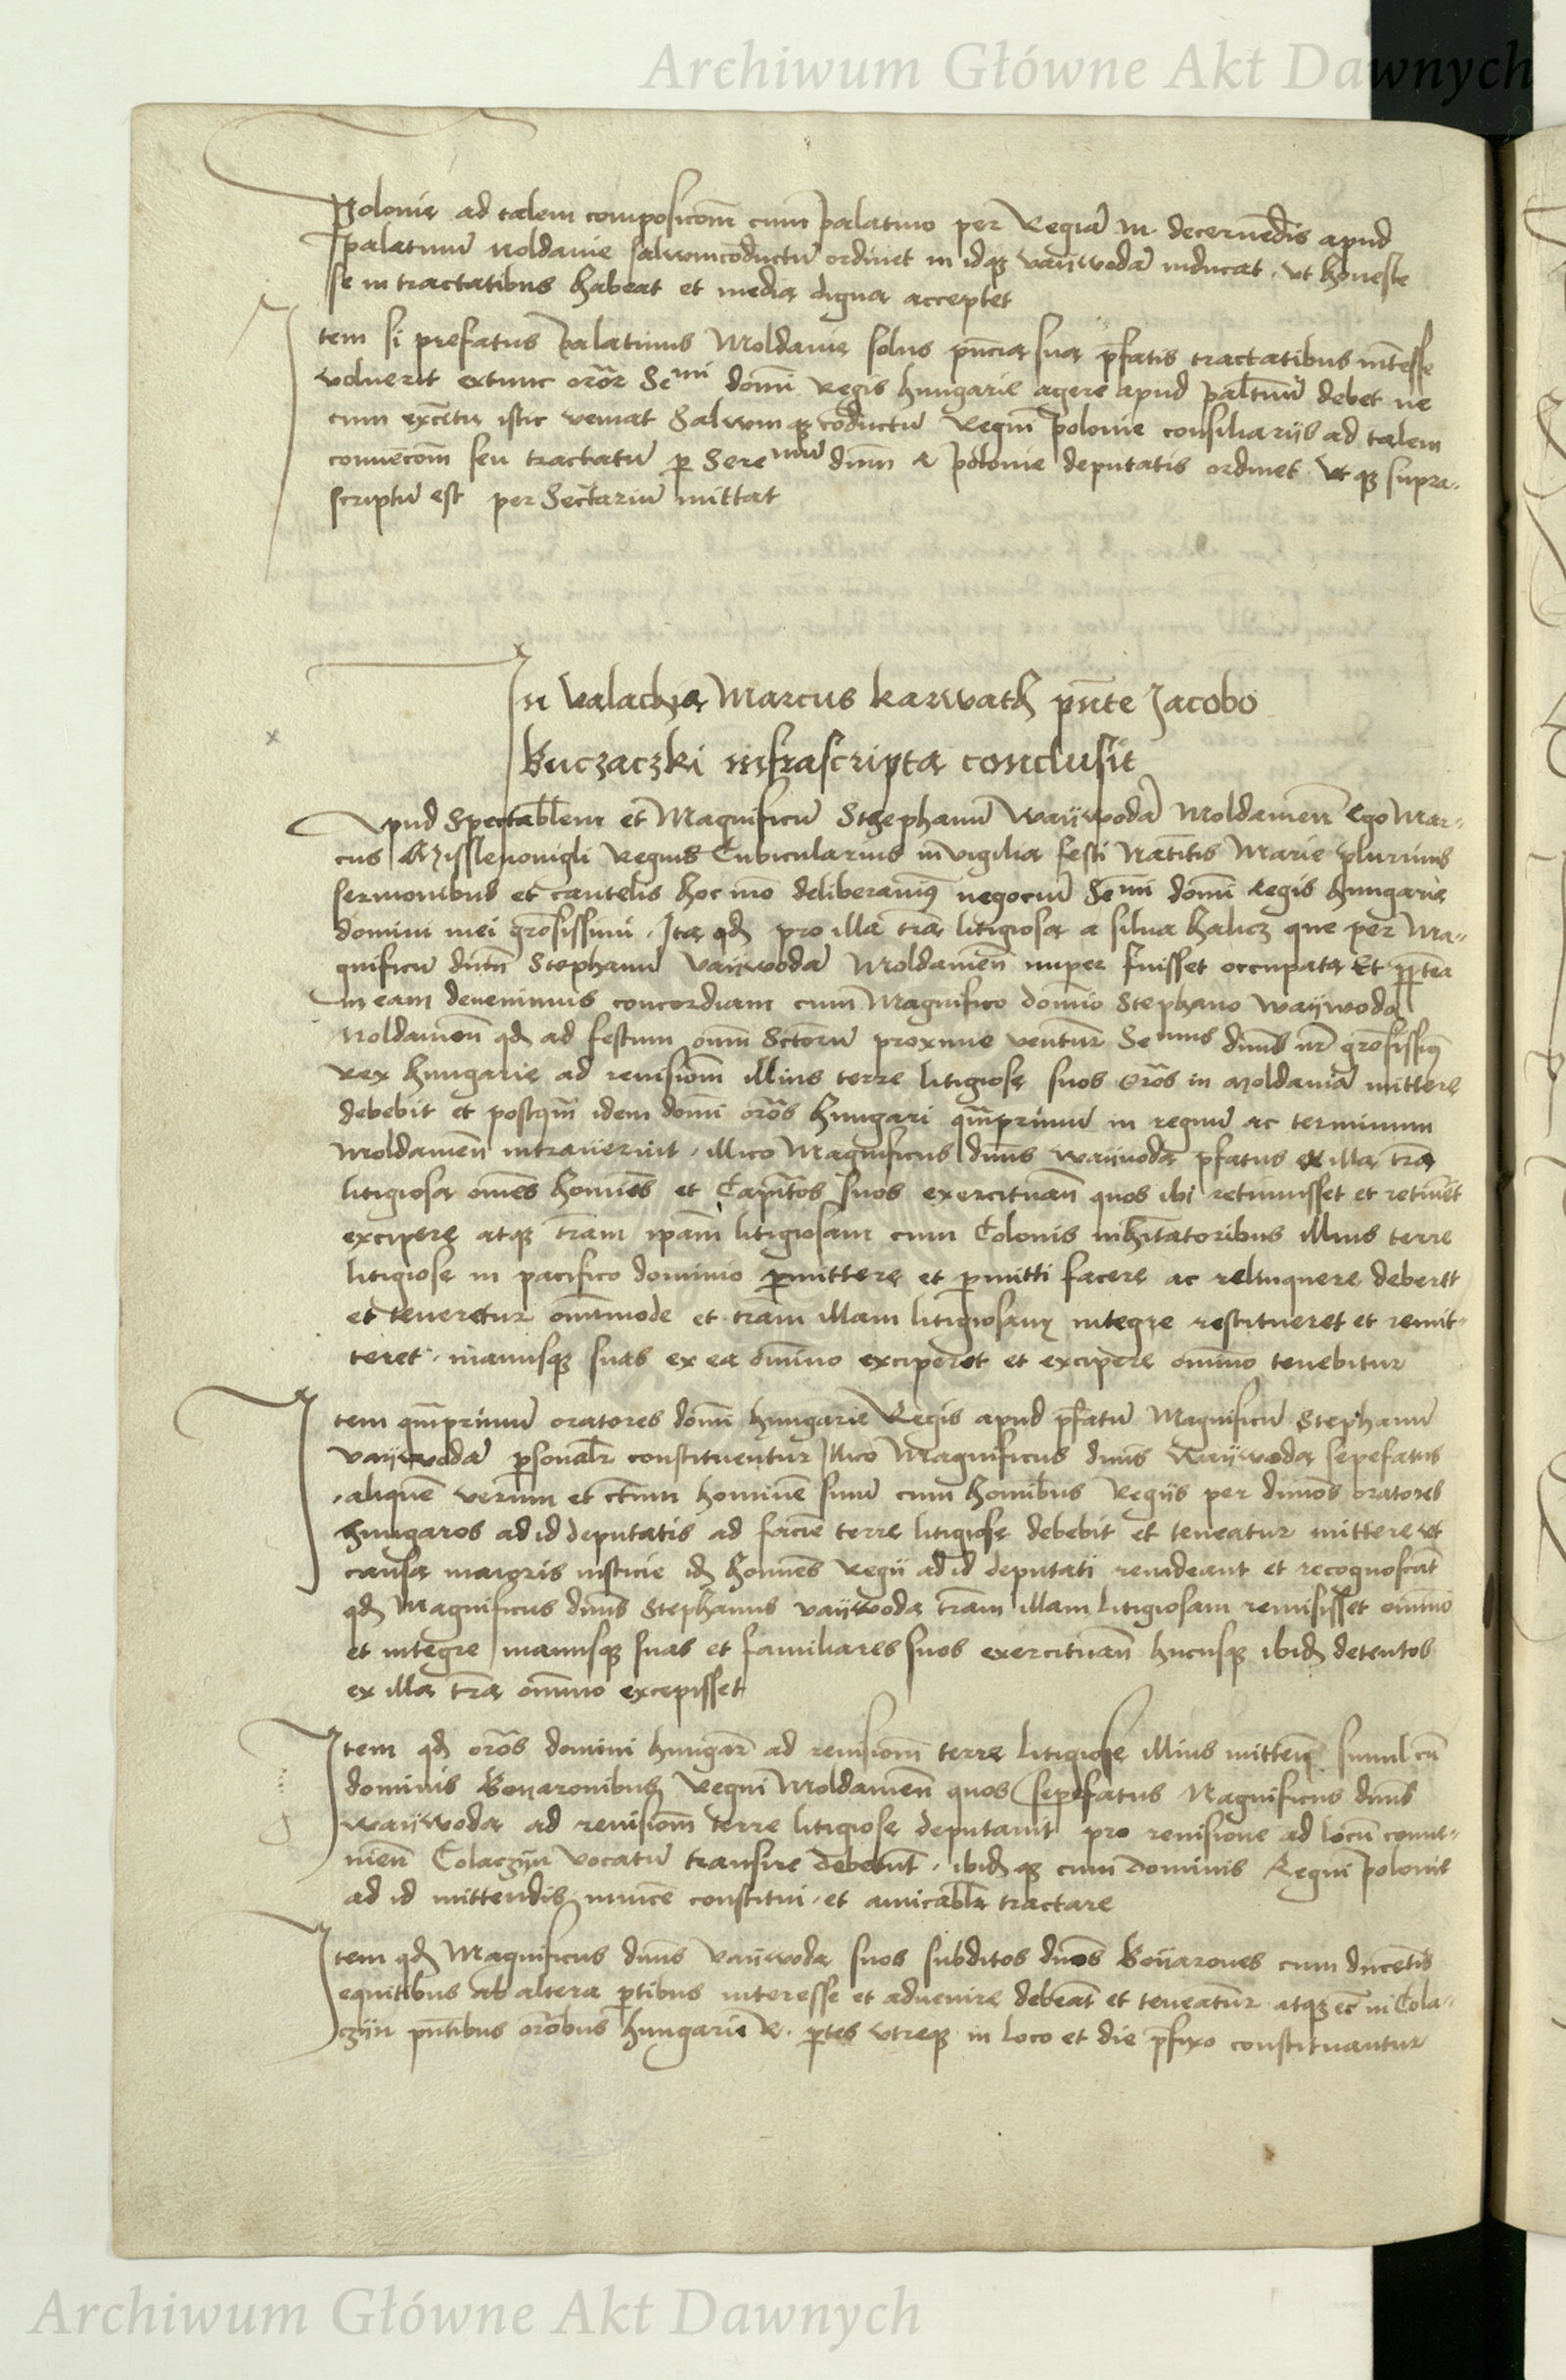 Archiwum Główne Akt Dawnych
Polonie ad talem composicom̄ cum palatino per Regiā M. decernēdis apud
palatinū Moldavie salvumcōductū ordinet in idq₃ vaÿvodā inducat. Ut honeste
se in tractatibus habeat et media digna acceptet
Item si prefatus palatinus Moldavie solus pn̄cia sua p̄fatis tractatibus int̄esse
voluerit extunc orōr Seᵐⁱ domī Regis hungarie agere apud palt̄inū debet ne
cum exc̄itu istic veniat Salvumq₃ cōductū Regni polonie consiliarijs ad talem
convēcom̄ seu tractatū p Sereᵐᵘᵐ dūm R polonie deputatis ordinet. Utq₃ supra-
scriptū est per Sect̄ariū mittat
In Valachia Marcus karwath pn̄te Jacobo
Buczaczki infrascripta conclusit
Apud Spectabl̄em et Magnificū Sthephanū Waÿwodā Moldavien̄ Ego Mar-
cus Regius Cubicularius in vigilia festi Nātitis Marie plurimis
sermonibus et cautelis hoc mō deliberavimꝰ negociū Seᵐⁱ domī Regis hungarie
domini mei grōsissimi. Ita qd̄ pro illa trā litigiosa a silva halicz que per Ma-
gnificū dūm Stephanū vaÿvodā Moldavien̄ nuper fuisset occupata Et ppt̄ea
in eam devenimus concordiam cum Magnifico domīo Stephano Waÿwoda
Moldavien̄ qd̄ ad festum om̄i Sctōrū proxime ventur̄ Seᵐᵘˢ dūns nr̄ grōsissimꝰ
Rex hungarie ad revisiom̄ illius terre litigiose suos Orōs in Moldaviā mittere
debebit et postqm̄ idem domī orōs hungari qm̄primū in regnū ac terminum
Moldavien̄ intraverint. illico Magnificus dūns waÿvoda p̄fatus ex illa trā
litigiosa om̄es homīes et Capit̄os suos exercituan̄ quos ibi retinuisset et retinēt
excipere atq₃ trām ipam̄ litigiosam cum Colonis inhit̄atoribus illius terre
litigiose in pacifico dominio p̱mittere et p̱mitti facere ac relinquere deberet
et teneretur om̄imode et trām illam litigiosam integre restitueret et remit-
teret. manusq₃ suas ex ea om̄ino exciperet et excipere om̄ino tenebitur
Item qm̄primū oratores domī hungarie Regis apud p̄fatū Magnificū Stephanū
vaÿvodā p̱sonalr̄ constituentur Illico Magnificus dūns Waÿwoda sepefatus
aliquē verum et ctūm hominē suū cum homībus Regijs per dūnos oratores
hungaros ad id deputatis ad faciē terre litigiose debebit et teneatur mittere ut
causa maioris iusticie id̄ homīes Regii ad id deputati revideant et recognoscāt
qd̄ Magnificus dūns Stephanus vaÿwoda trām illam litigiosam remisisset om̄ino
et integre manusq₃ suas et familiares suos exercituan̄ hucusq₃ ibid̄ detentos
ex illa trā om̄ino excepisset
Item qd̄ orōs domini hungar̄ ad revisiom̄ terre litigiose illius mitten̄ simul cū
dominis Boyaronibus Regni Moldavien̄ quos sepefatus Magnificus dūns
waÿwoda ad revisiom̄ terre litigiose deputavit pro revisione ad locū conve-
nien̄ Colaczÿn vocatū transire debebūt. ibid̄q₃ cum dominis Regni polonie
ad id mittendis invicē constitui. et amicabl̄r tractare
Item qd̄ Magnificus dūns vaÿwoda suos subditos dn̄os Boÿarones cum ducētis
equitibus ab altera p̱tibus interesse et advenire debeāt et teneatūr atq₃ ec̄ in Cola-
czÿn pn̄tibus orōbus hungarie R. p̱tes utreq₃ in loco et die p̄fixo constituantur
Archiwum Główne Akt Dawnych